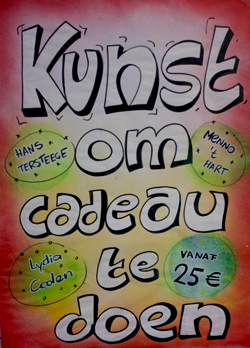 Kunst
HANS
TERSTEEGE
om
MENNO
't
HART
cadeau
Lydia
Coolen
te
VANAF
25 €
doen